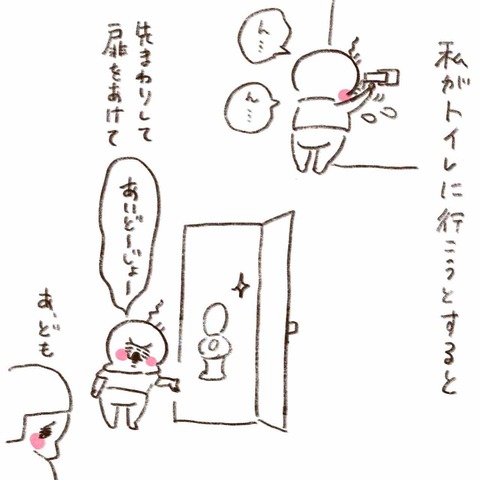 私がトイレに行こうとすると
ん…
ん…
先まわりして
扉をあけて
あいど〜じょー
あ、ども